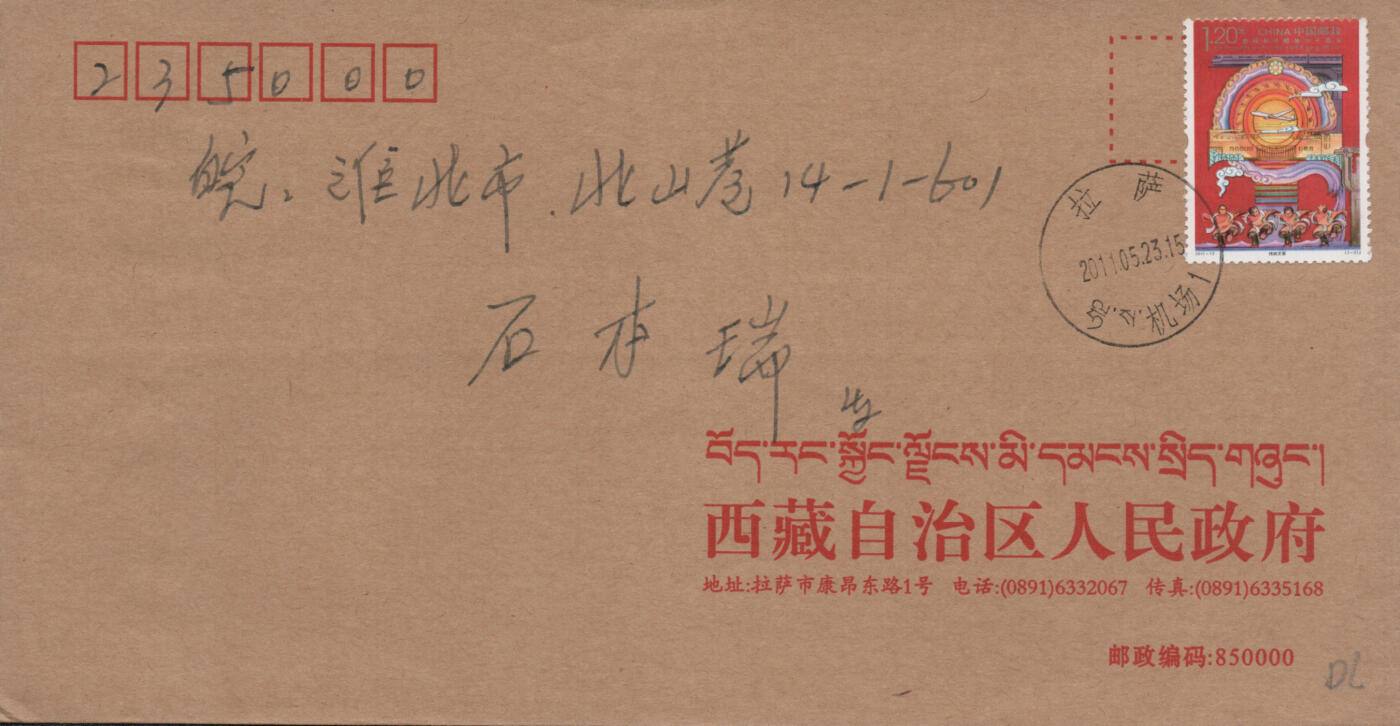 235000
1.20元 CHINA 中国邮政
皖、淮北市、北山巷14-1-601
拉萨
2011.05.23.15
机场1
石本瑞
བོད་རང་སྐྱོང་ལྗོངས་མི་དམངས་སྲིད་གཞུང་།
西藏自治区人民政府
地址:拉萨市康昂东路1号 电话:(0891)6332067 传真:(0891)6335168
邮政编码:850000
DL